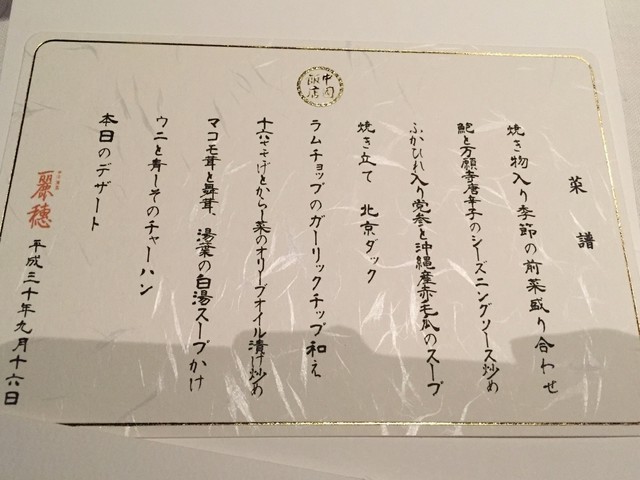 中国飯店
菜譜
焼き物入り季節の前菜盛り合わせ
鮑と万願寺唐辛子のシーズニングソース炒め
ふかひれ入り党参と沖縄産赤毛瓜のスープ
焼き立て 北京ダック
ラムチョップのガーリックチップ和え
十六ささげとからし菜のオリーブオイル漬け炒め
マコモ茸と舞茸、湯葉の白湯スープかけ
ウニと青しそのチャーハン
本日のデザート
麗穂
平成三十年九月十六日